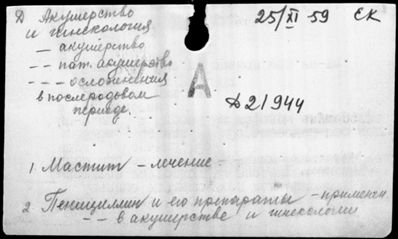 Д Акушерство 25/XI 59 ЕК
и гинекология
— акушерство
-- пат. акушерство
--- осложнения
в послеродовом
периоде.
А
Д21944
1. Мастит - лечение
2. Пенициллин и его препараты - применен.
-- в акушерстве и гинекологии